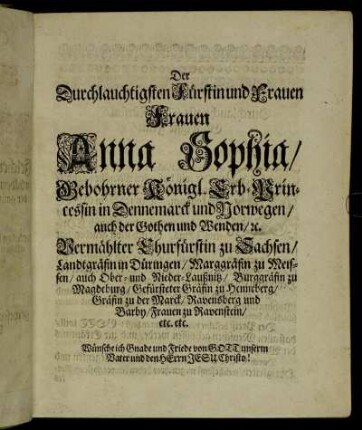 Der
Durchlauchtigsten Fürstin und Frauen
Frauen
Anna Sophia/
Gebohrner Königl. Erb-Prin-
cessin in Dennemarck und Norwegen/
auch der Gothen und Wenden/ ꝛc.
Vermählter Churfürstin zu Sachsen/
Landtgräfin in Düringen/ Marggräfin zu Meis-
sen/ auch Ober- und Nieder-Laußnitz/ Burggräfin zu
Magdeburg/ Gefürsteter Gräfin zu Henneberg/
Gräfin zu der Marck/ Ravensberg und
Barby/ Frauen zu Ravenstein/
etc. etc.
Wünsche ich Gnade und Friede von GOTT unserm
Vater und den HErrn JESU Christo!